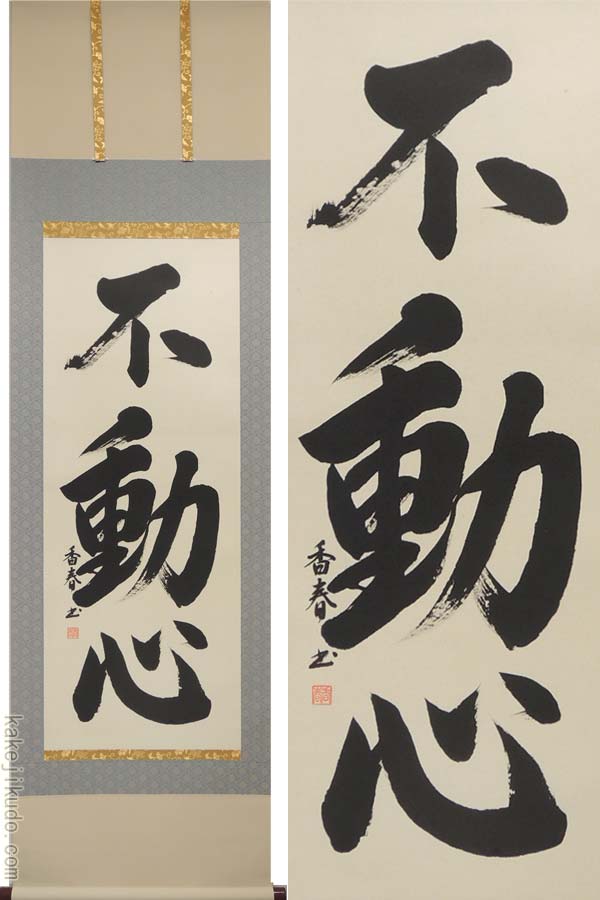 不動心
香春書
不動心
香春書
kakejikudo.com